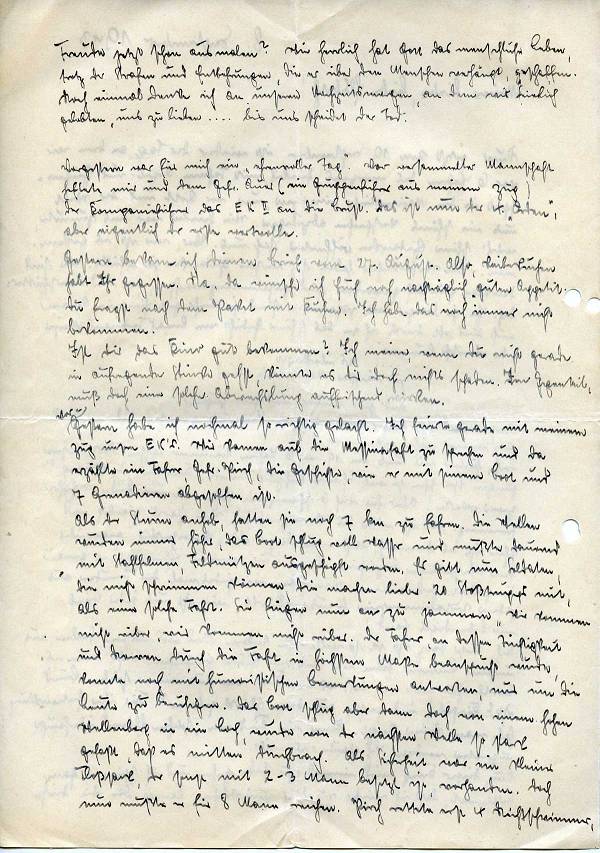 Freude jetzt schon ausmalen? Wie herrlich hat Gott das menschliche Leben,
trotz der Strafen und Entbehrungen, die er über den Menschen verhängt, geschaffen.
Noch einmal denke ich an unseren Hochzeitsmorgen, an dem wir feierlich
gelobten, uns zu lieben .... bis uns scheidet der Tod.
Vorgestern war für mich ein „ehrenvoller Tag“. Vor versammelter Mannschaft
heftete mir und dem Gefr. Auer (ein Gruppenführer aus meinem Zug)
der Kompanieführer das EK II an die Brust. Das ist nun der 4. „Orden“,
aber eigentlich der erste wertvolle.
Gestern bekam ich Deinen Brief vom 27. August. Also Leberkuchen
habt Ihr gegessen. Na, da wünsche ich Euch noch nachträglich guten Appetit.
Du fragst nach dem Paket mit Kuchen. Ich habe das noch immer nicht
bekommen.
Ist Dir das Kino gut bekommen? Ich meine, wenn Du nicht gerade
in aufregende Stücke gehst, könnte es Dir doch nichts schaden. Im Gegenteil,
muß doch eine solche Abwechslung auffrischend wirken.
Vorgestern habe ich nochmal so richtig gelacht. Ich feierte gerade mit meinem
Zug unsere EK's. Wir kamen auf die Messinafahrt zu sprechen und da
erzählte ein Fahrer, Gefr. Hirch, die Geschichte, wie er mit seinem Boot und
7 Grenadieren abgesoffen ist.
Als der Sturm anhob, hatten sie noch 7 km zu fahren. Die Wellen
wurden immer höher, das Boot schlug voll Wasser und mußte dauernd
mit Stahlhelmen, Feldmützen ausgeschöpft werden. Es gibt nun Soldaten,
die nicht schwimmen können, die machen lieber 20 Stoßtrupps mit,
als eine solche Fahrt. Sie fingen nun an zu jammern „wir kommen
nicht rüber, wir kommen nicht rüber. Der Fahrer, an dessen Tüchtigkeit
und Nerven durch die Fahrt in höchstem Maße beansprucht wurde,
konnte noch mit humoristischen Bemerkungen antworten und um die
Leute zu beruhigen. Das Boot schlug aber dann doch von einem hohen
Wellenberg in ein Loch, wurde von der nächsten Welle so stark
gefaßt, daß es mitten durchbrach. Als Sicherheit war ein kleiner
Floßsack, der sonst mit 2-3 Mann besetzt ist, vorhanden. Doch
nun mußte er für 8 Mann reichen. Hirch rettete erst 4 Nichtschwimmer,